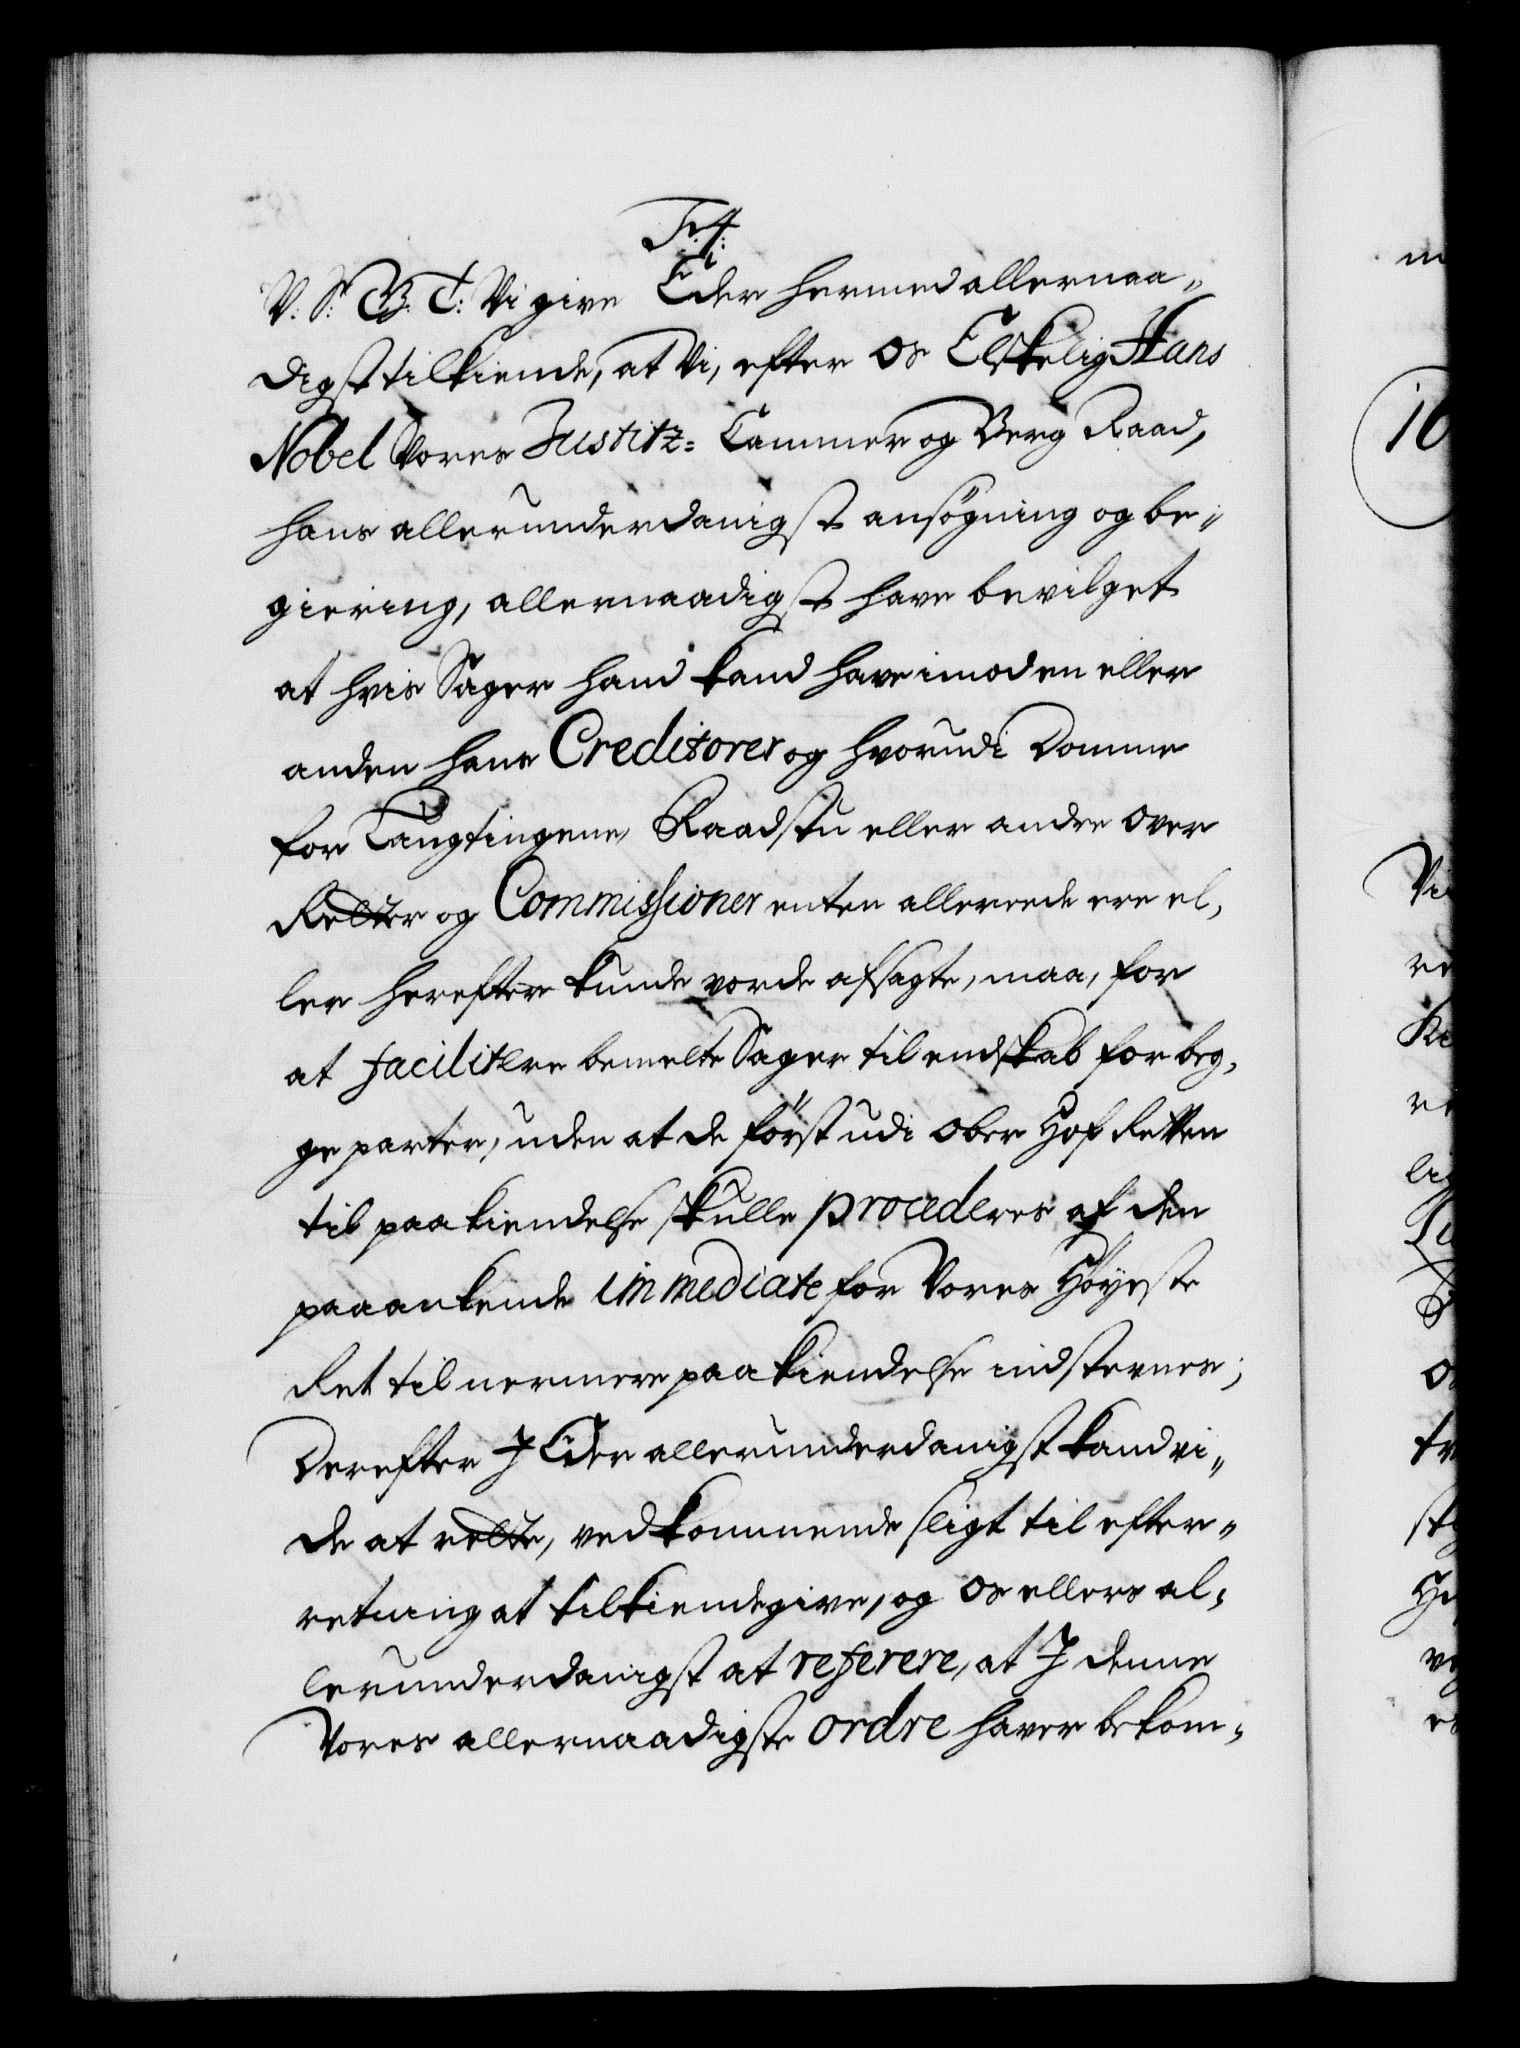 F:4:
V: S: G: T: Vi give Eder hermed allernaa-
digst tilkiende, at Vi, efter Os Elskelig Hans
Nobel Vores Justitz- Cammer og Berg Raad,
hans allerunderdanigst ansøgning og be-
giering, allernaadigst have bevilget
at hvis Sager hand kand have imod en eller
anden hans Creditorer og hvorudi Domme
for Laugtingene, Raadstu eller andre over
Retter og Commissioner enten allereede ere el-
ler herefter kunde vorde afsagte, maa, for
at facilitere bemelte Sager til endskab for beg-
ge parter, uden at de først udi Ober Hof Retten
til paakiendelse skulle procederes af den
paaankende immediate for Vores Høyeste
Ret til nermere paakiendelse indstevnes;
Derefter I Eder allerunderdanigst kand vi-
de at rette, vedkommende sligt til efter-
retning at tilkiendegive, og Os ellers al-
lerunderdanigst at referere, at I denne
Vores allernaadigste ordre haver bekom-